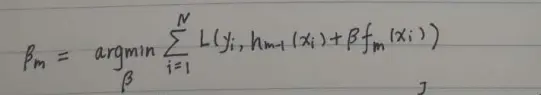 βₘ = argmin_β ∑_{i=1}^{N} L(yᵢ, hₘ₋₁(xᵢ) + βfₘ(xᵢ))